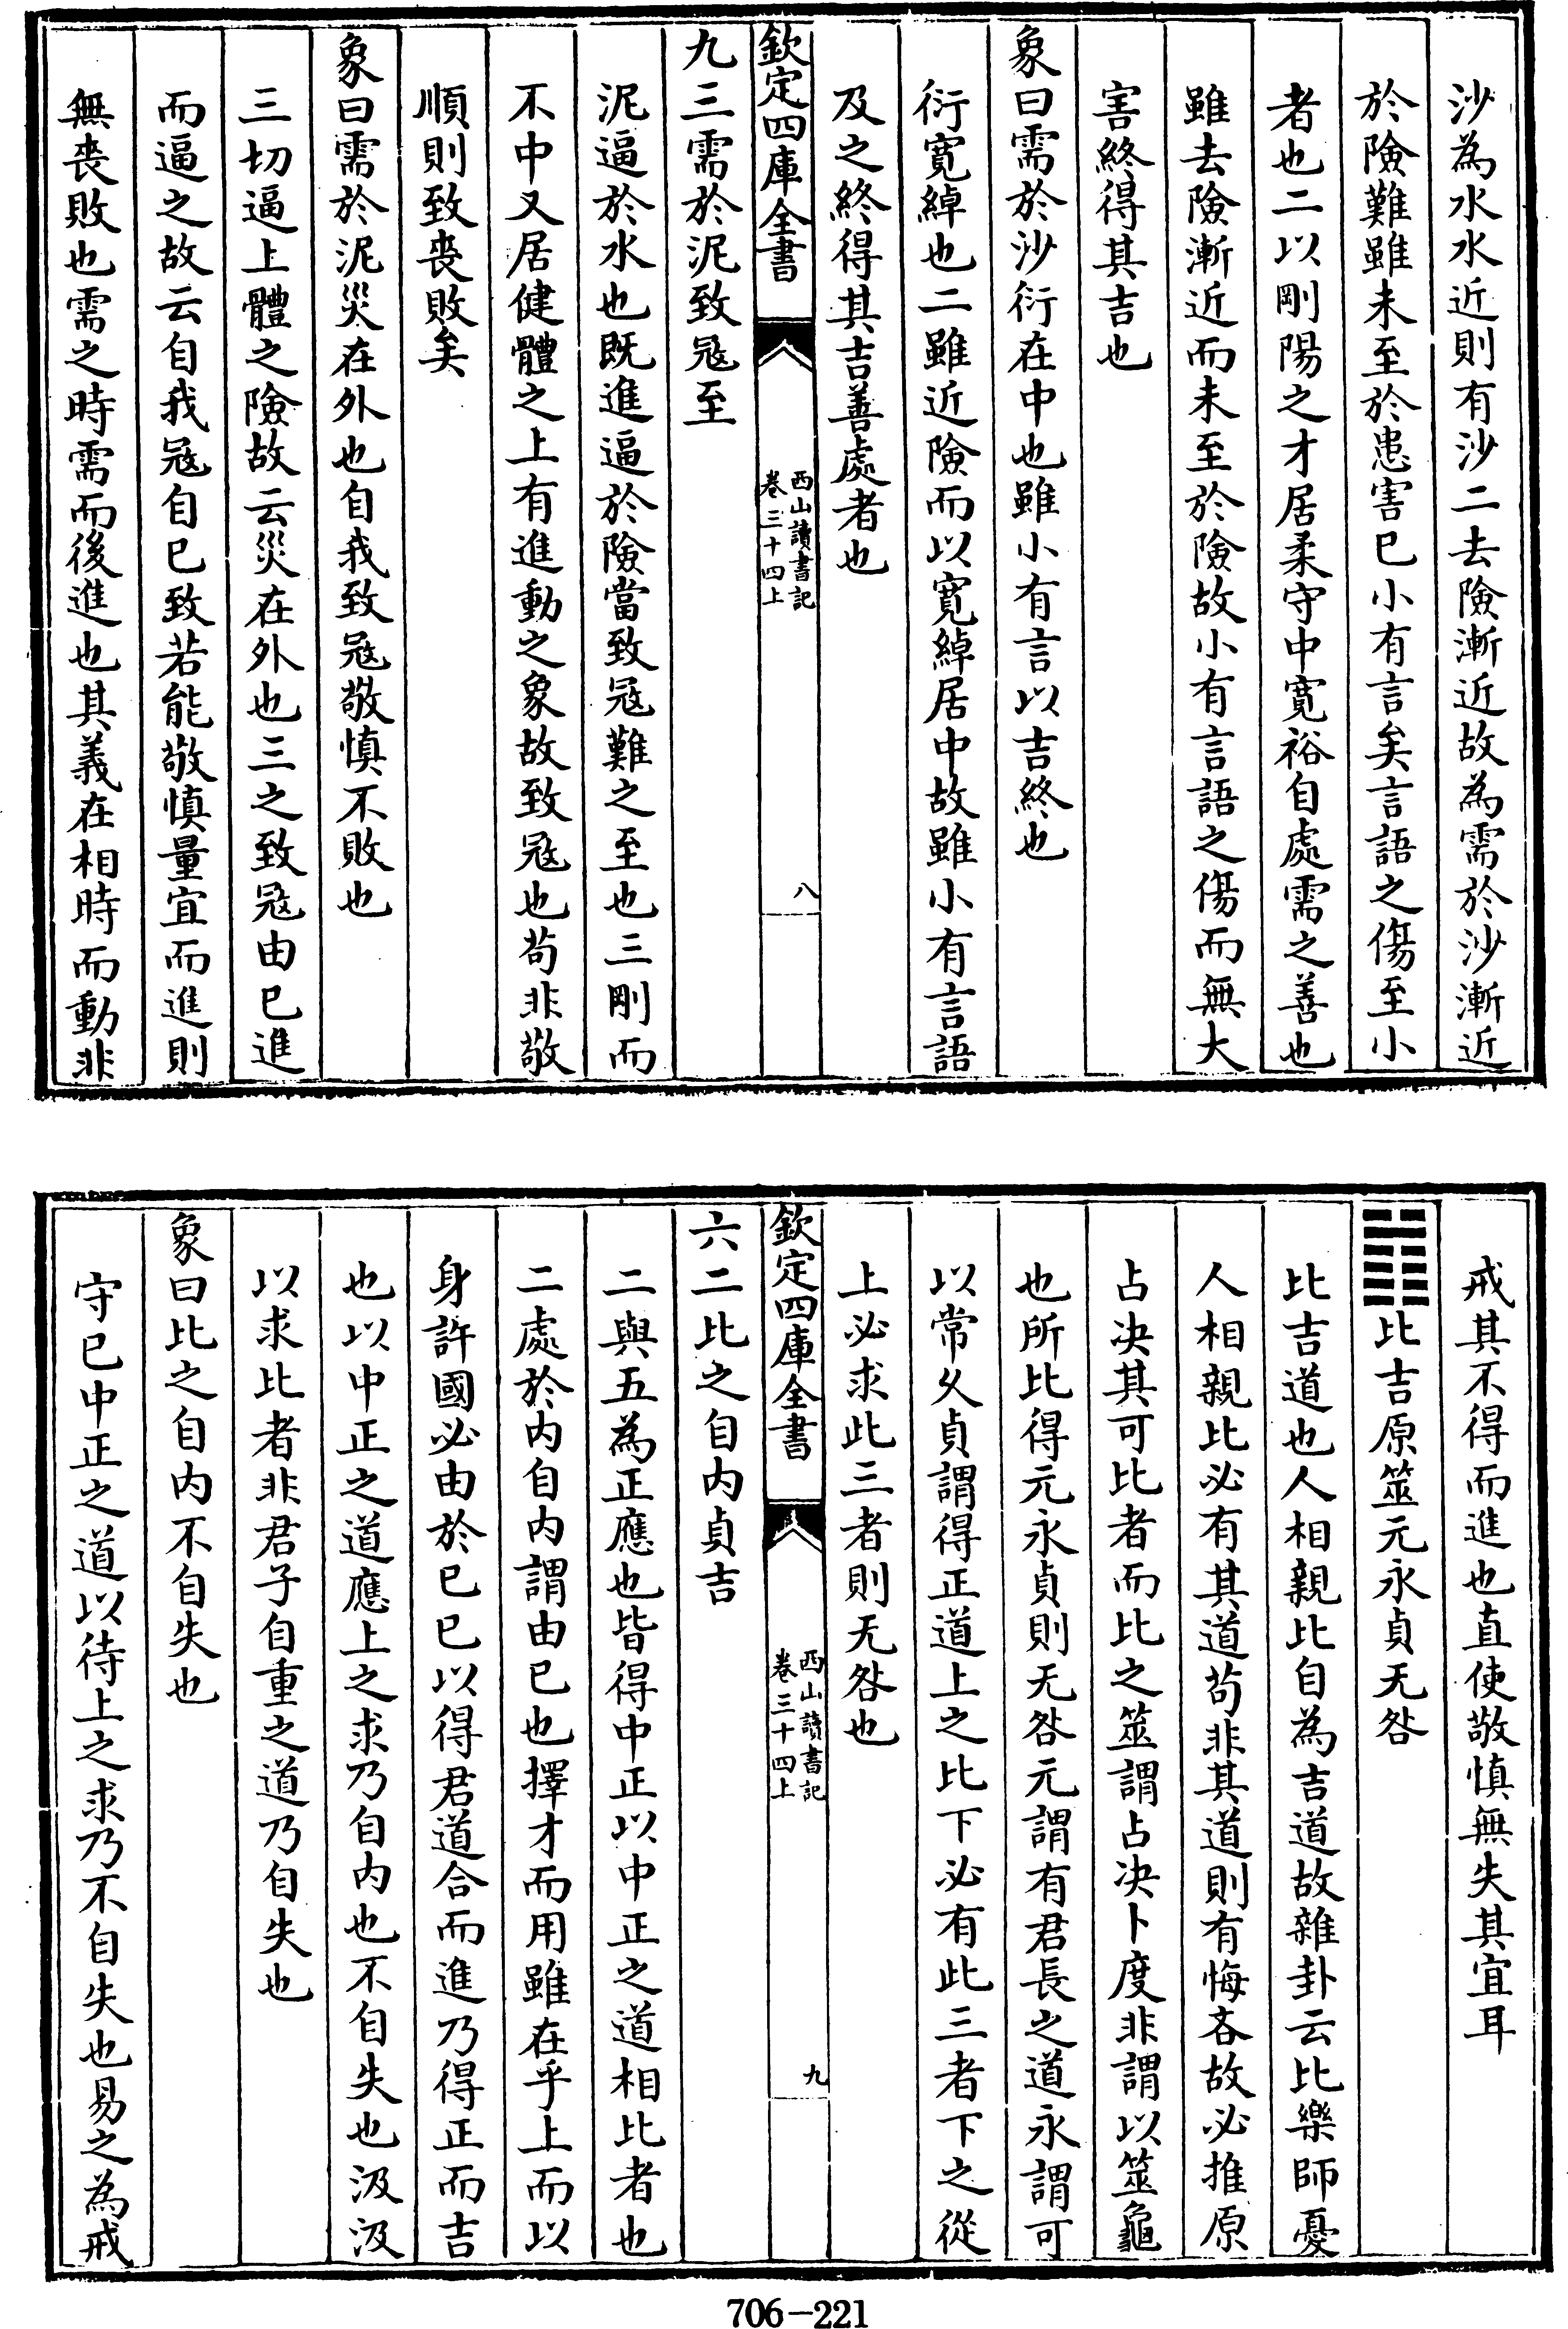 沙為水水近則有沙二去險漸近故為需於沙漸近
於險難雖未至於患害已小有言矣言語之傷至小
者也二以剛陽之才居柔守中寛裕自處需之善也
雖去險漸近而未至於險故小有言語之傷而無大
害終得其吉也
象曰需於沙衍在中也雖小有言以吉終也
衍寛綽也二雖近險而以寛綽居中故雖小有言語
及之終得其吉善處者也
欽定四庫全書
西山讀書記
卷三十四上
八
九三需於泥致冦至
泥逼於水也既進逼於險當致冦難之至也三剛而
不中又居健體之上有進動之象故致冦也苟非敬
順則致喪敗矣
象曰需於泥災在外也自我致冦敬慎不敗也
三切逼上體之險故云災在外也三之致冦由已進
而逼之故云自我冦自已致若能敬慎量宜而進則
無喪敗也需之時需而後進也其義在相時而動非
戒其不得而進也直使敬慎無失其宜耳
䷇比吉原筮元永貞无咎
比吉道也人相親比自為吉道故雜卦云比樂師憂
人相親比必有其道苟非其道則有悔吝故必推原
占决其可比者而比之筮謂占决卜度非謂以筮龜
也所比得元永貞則无咎元謂有君長之道永謂可
以常乆貞謂得正道上之比下必有此三者下之從
上必求此三者則无咎也
欽定四庫全書
西山讀書記
卷三十四上
九
六二比之自内貞吉
二與五為正應也皆得中正以中正之道相比者也
二處於内自内謂由已也擇才而用雖在乎上而以
身許國必由於已已以得君道合而進乃得正而吉
也以中正之道應上之求乃自内也不自失也汲汲
以求比者非君子自重之道乃自失也
象曰比之自内不自失也
守已中正之道以待上之求乃不自失也易之為戒
706-221